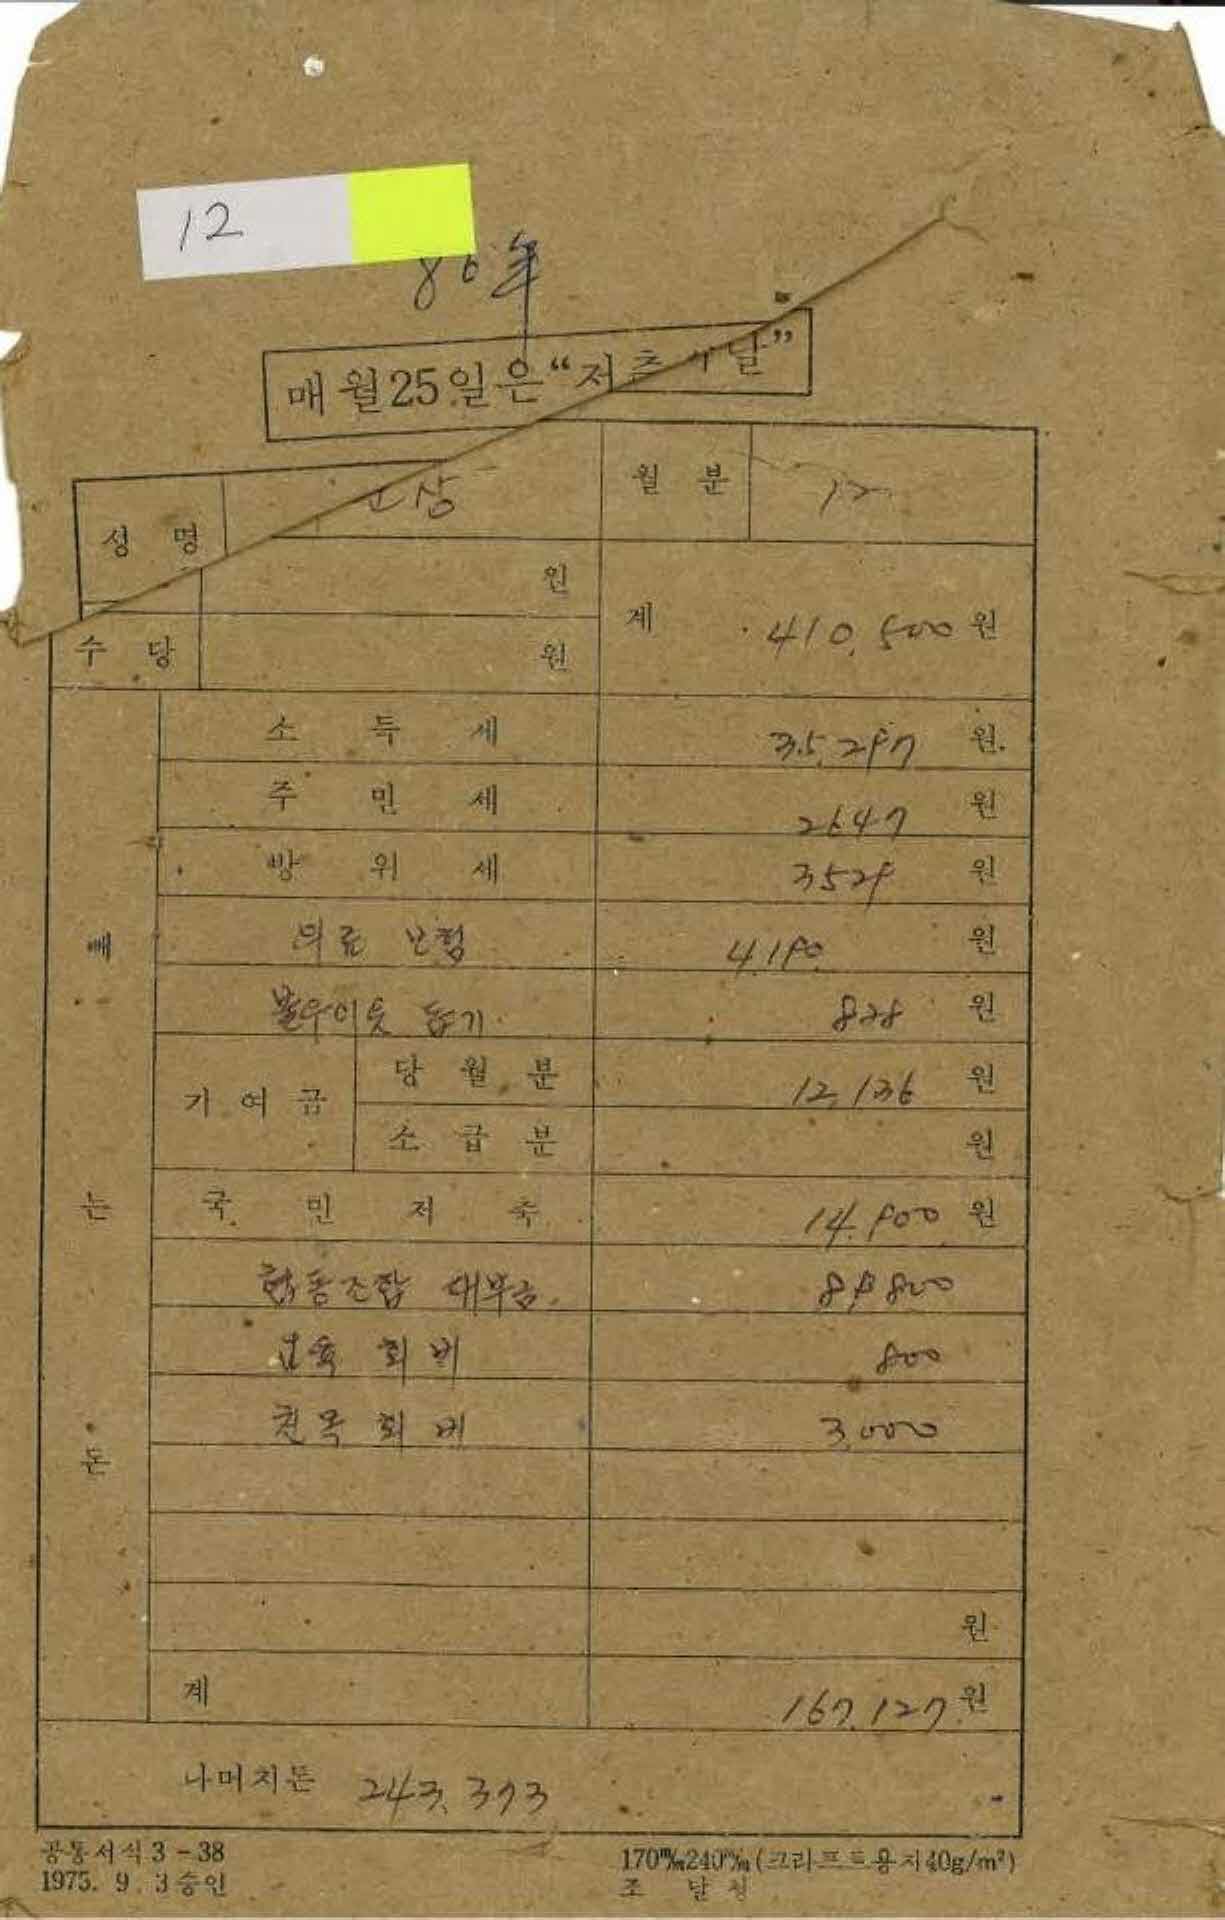 12
86年
매월25일은“저축 달”
성 명 상 월 분 12
원
계 410,500 원
수 당 원
소 득 세 35,297 원
주 민 세 2647 원
방 위 세 3529 원
빼 의료 보험 4,190 원
불우이웃 돕기 828 원
기 여 금 당 월 분 12,136 원
소 급 분 원
는 국 민 저 축 14,900 원
협동조합 대부금 89800
교육 회비 800
돈 친목 회비 3,000
원
계 167,127 원
나머지돈 243,373
공통서식 3 - 38
1975. 9. 3 승인
170㎜240㎜(크라프트용지40g/m²)
조 달 청